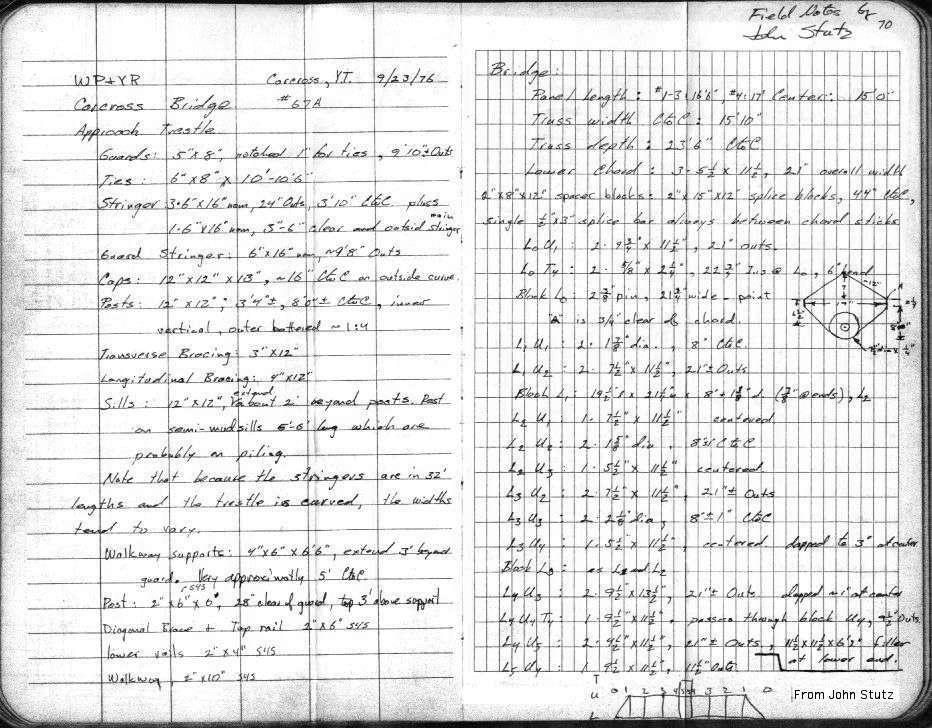 Field Notes by
John Stutz
70
WP+YR Carcross, YT. 9/23/76
Carcross Bridge #67A
Approach Trestle
Guards: 5"x8", notched 1" for ties, 9'10"± Outs
Ties: 6"x8" x 10'-10'6"
Stringer 3·6"x16" nom, 24" Outs, 3'10" CtoC. plus
1·6"x16" nom, 3"-6" clear and outsid main stringer
Guard Stringer: 6"x16" nom, ~9'8" Outs
Caps: 12"x12" x 13', ~16' CtoC on outside curve.
Posts: 12"x12"; 3'4"±, 8'0"± CtoC, inner
vertical, outer battered ~1:4
Transverse Bracing: 3"x12"
Longitudinal Bracing: 4"x12"
Sills: 12"x12", extend about 2' beyond posts. Rest
on semi-mudsills 5'-6' long which are
probably on piling.
Note that because the stringers are in 32'
lengths and the trestle is curved, the widths
tend to vary.
Walkway supports: 4"x6" x 6'6", extend 3' beyond
guard. Very approximatly 5' CtoC.
Post: 2"x6" x 6', S4S 28" clear of guard, top 3' above support
Diagonal Brace + Top rail 2"x6" S4S
lower rails 2"x4" S4S
Walkway, 2"x10" S4S
Bridge:
Panel length: #1-3: 16'6", #4: 17' Center: 15'0"
Truss width CtoC: 15'10"
Truss depth: 23'6" CtoC
Lower Chord: 3·5½ x 11½, 21" overall width
2"x8"x12" spacer blocks: 2"x15"x12" splice blocks, 44" CtoC,
single ½"x3" splice bar always between chord sticks
L₀ U₁: 2·9¾" x 11½", 21" outs.
L₀ T₄: 2· ⅝" x 2¼",
Block L₀ pin, wide - point
"A" is 3/4" clear of chord.
L₁ U₁: 2· dia., 8" CtoC.
L₁ U₂: 2· 7½" x 11½", 21"± Outs
Block L₁:
L₂ U₁: 1· 7½" x 11½" centered
L₂ U₂: 2· 1⅝" dia, CtoC
L₂ U₃: 1·5½" x 11½" centered.
L₃ U₂: 2·7½" x 11½", 21"± Outs
L₃ U₃: 2· dia, 8"±1" CtoC
L₃ U₄: 1·5½" x 11½", centered dapped to 3" at center
Block L₃: as L₁ and L₂
L₄ U₃: 2·9½" x 13½", 21"± Outs. dapped ~1" at center
L₄ U₄ T₄: 1·9½" x 11½", passes through block U₄, Outs.
L₄ U₅: 2·9½" x 11½", 21"± Outs, 11½ x 11½ x 6'2" filler
at lower end.
L₅ U₄: 1·9½" x 11½", 11½" Outs
T
U 0 1 2 3 4 3 2 1 0
L
From John Stutz